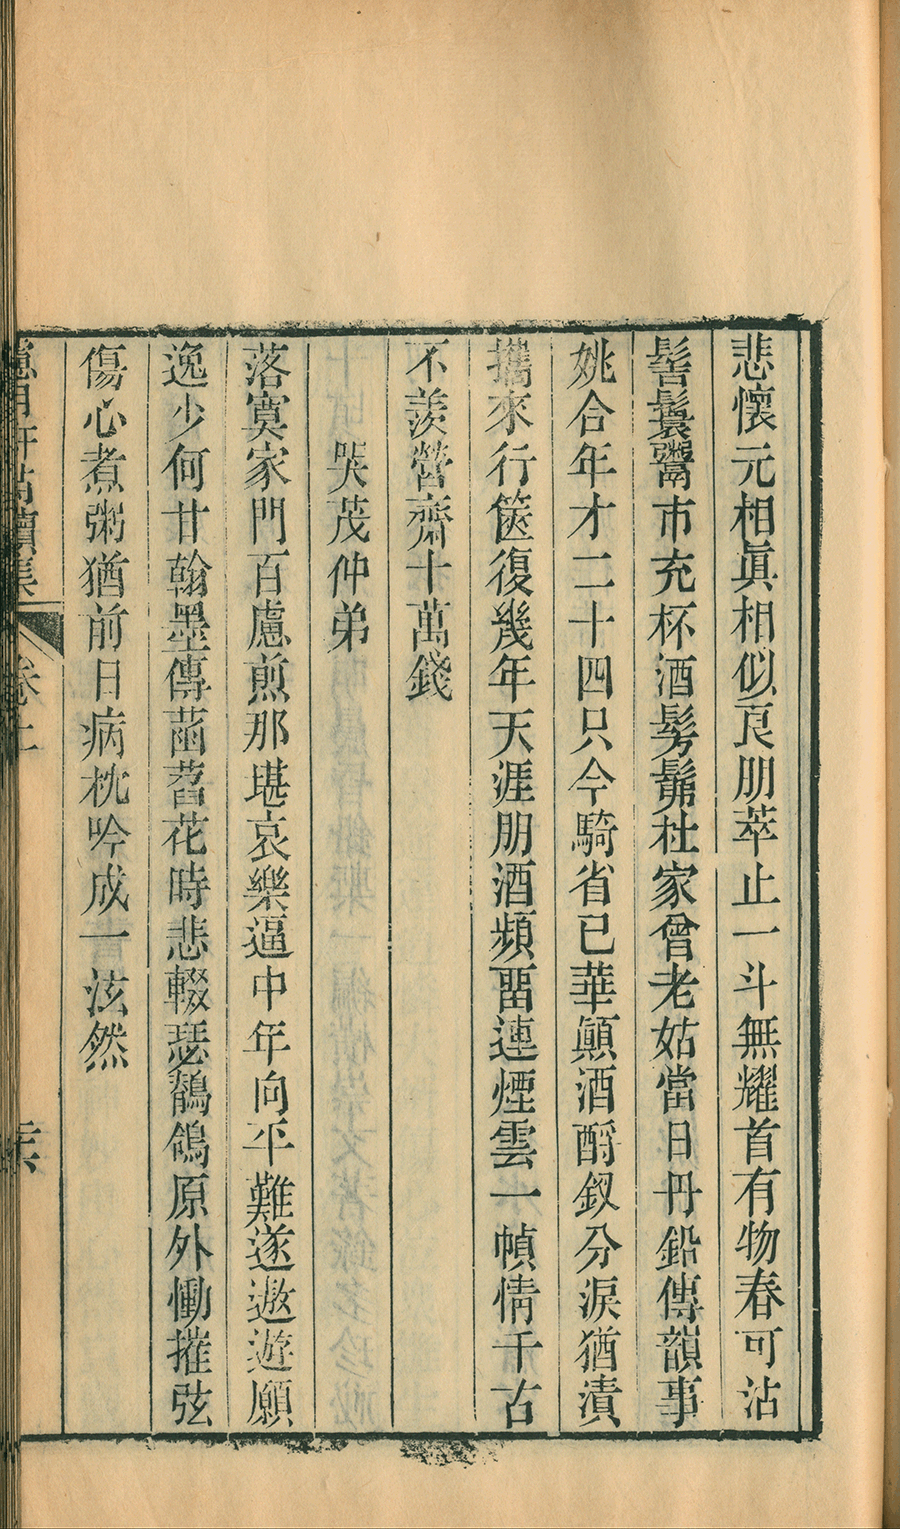 悲懷元相眞相似良朋萃止一斗無耀首有物春可沽
髻鬟鬻市充杯酒髣髴杜家曾老姑當日丹鉛傳韻事
姚合年才二十四只今騎省已華顚酒酹釵分淚猶漬
攜來行篋復幾年天涯朋酒頻畱連煙雲一幀情千古
不羨營齋十萬錢
哭茂仲弟
落寞家門百慮煎那堪哀樂逼中年向平難遂遨遊願
逸少何甘翰墨傳菡萏花時悲輟瑟鶺鴒原外慟摧弦
傷心煮粥猶前日病枕吟成一泫然
卷上